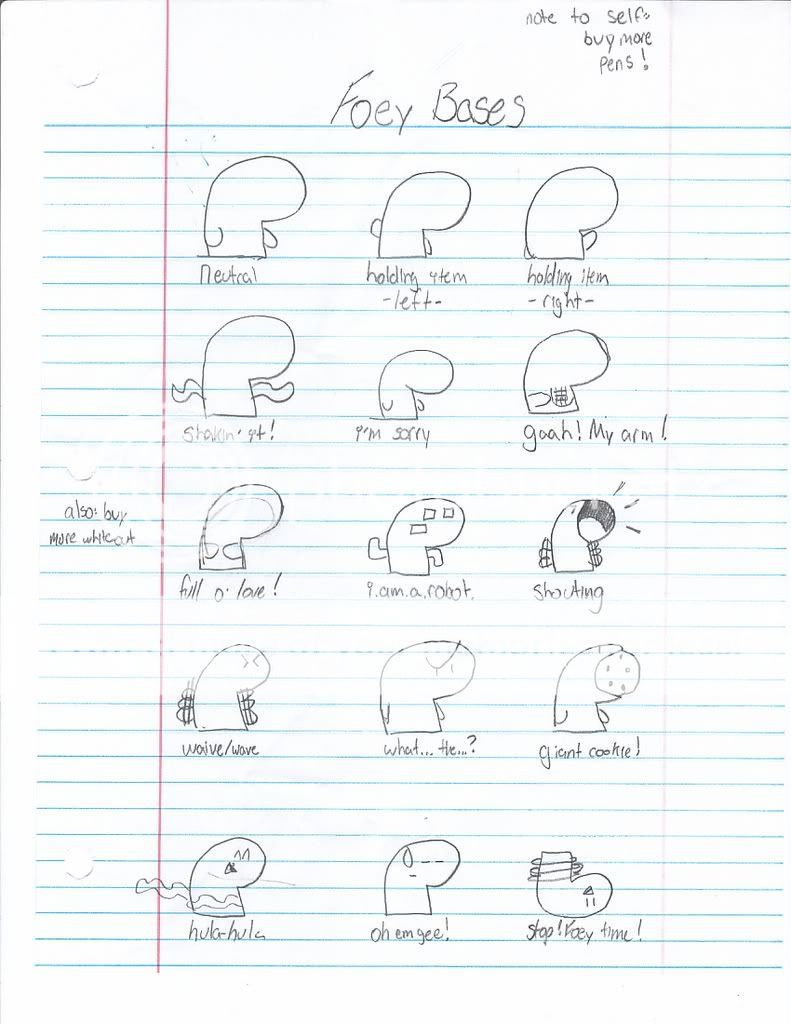 note to self:
buy more
pens!
Foey Bases
Neutral
holding item
-left-
holding item
-right-
shakin' it!
i'm sorry
gaah! My arm!
also: buy
more whiteout
full o' love!
i.am.a.robot.
shouting
waive/wave
what... the...?
giant cookie!
hula-hula
oh em gee!
stop! Foey time!